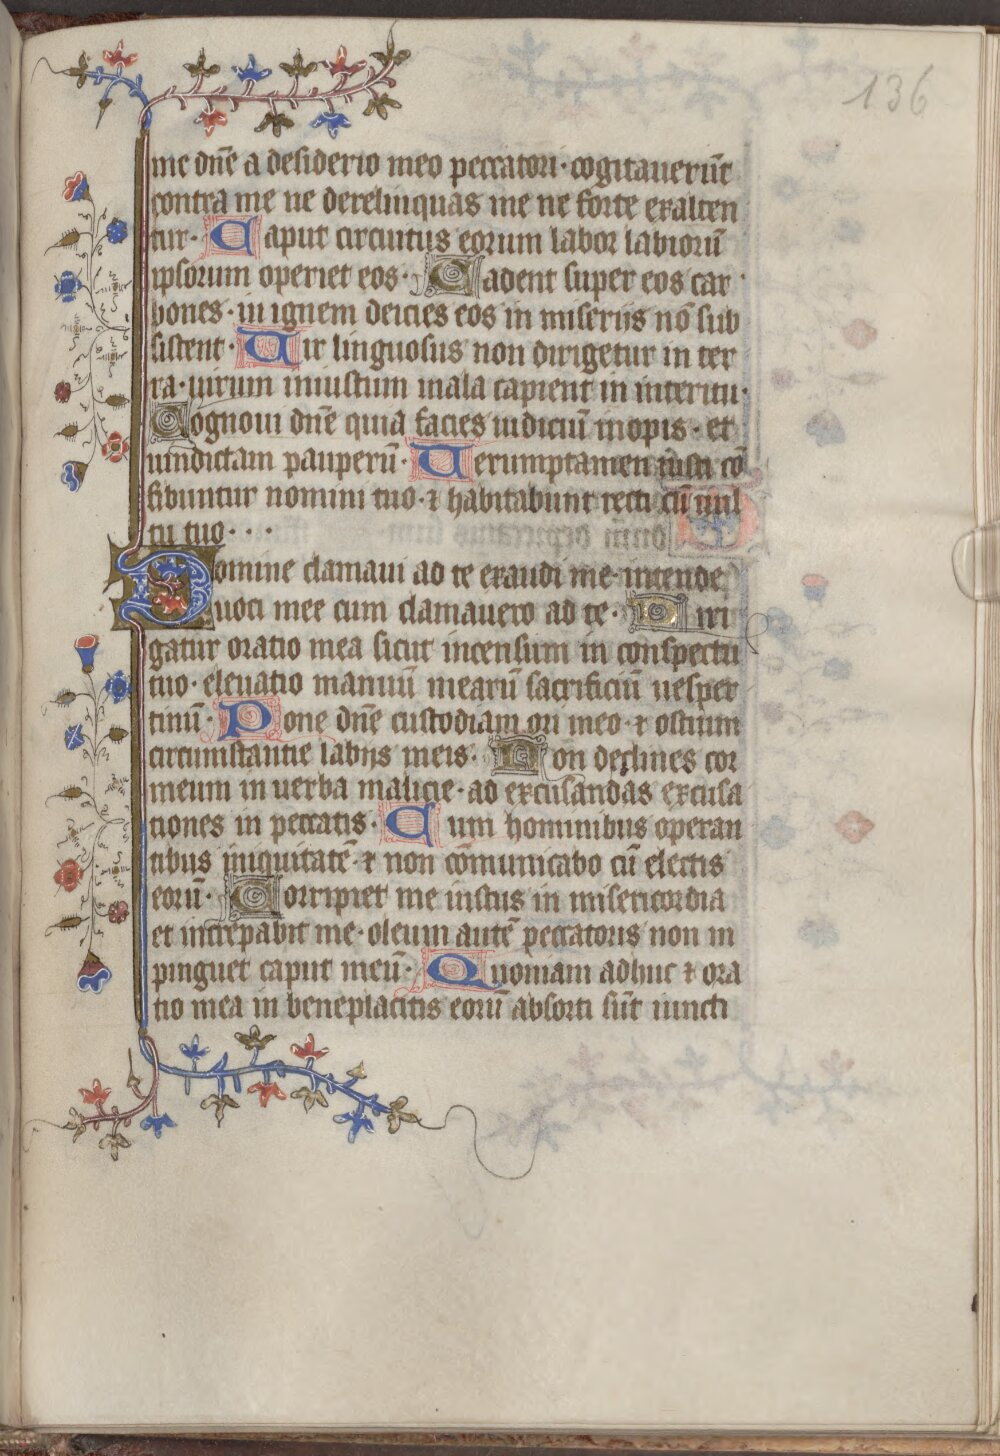 136
me dn̄e a desiderio meo peccatori · cogitauerūt
contra me ne derelinquas me ne forte exalten
tur · Caput circuitus eorum labor labiorū
ipsorum operiet eos · Cadent super eos car
bones · in ignem deicies eos in miseriis nō sub
sistent · Uir linguosus non dirigetur in ter
ra · uirum iniustum mala capient in interitu ·
Cognoui dn̄e quia facies iudiciū inopis · et
uindictam pauperū · Uerumptamen iusti cō
fibuntur nomini tuo · ⁊ habitabunt recti cū uul
tu tuo · · ·
Domine clamaui ad te exaudi me · intende
uoci mee cum clamauero ad te · Diri
gatur oratio mea sicut incensum in conspectu
tuo · eleuatio manuū mearū sacrificiū uesper
tinū · Pone dn̄e custodiam ori meo · ⁊ ostium
circumstantie labijs meis · Non declines cor
meum in uerba malicie · ad excusandas excusa
tiones in peccatis · Cum hominibus operan
tibus iniquitatē · ⁊ non cōmunicabo cū electis
eorū · Corripiet me iustus in misericordia
et increpabit me · oleum autē peccatoris non in
pinguet caput meū · Quoniam adhuc ⁊ ora
tio mea in beneplacitis eorū absorti sūt iuncti